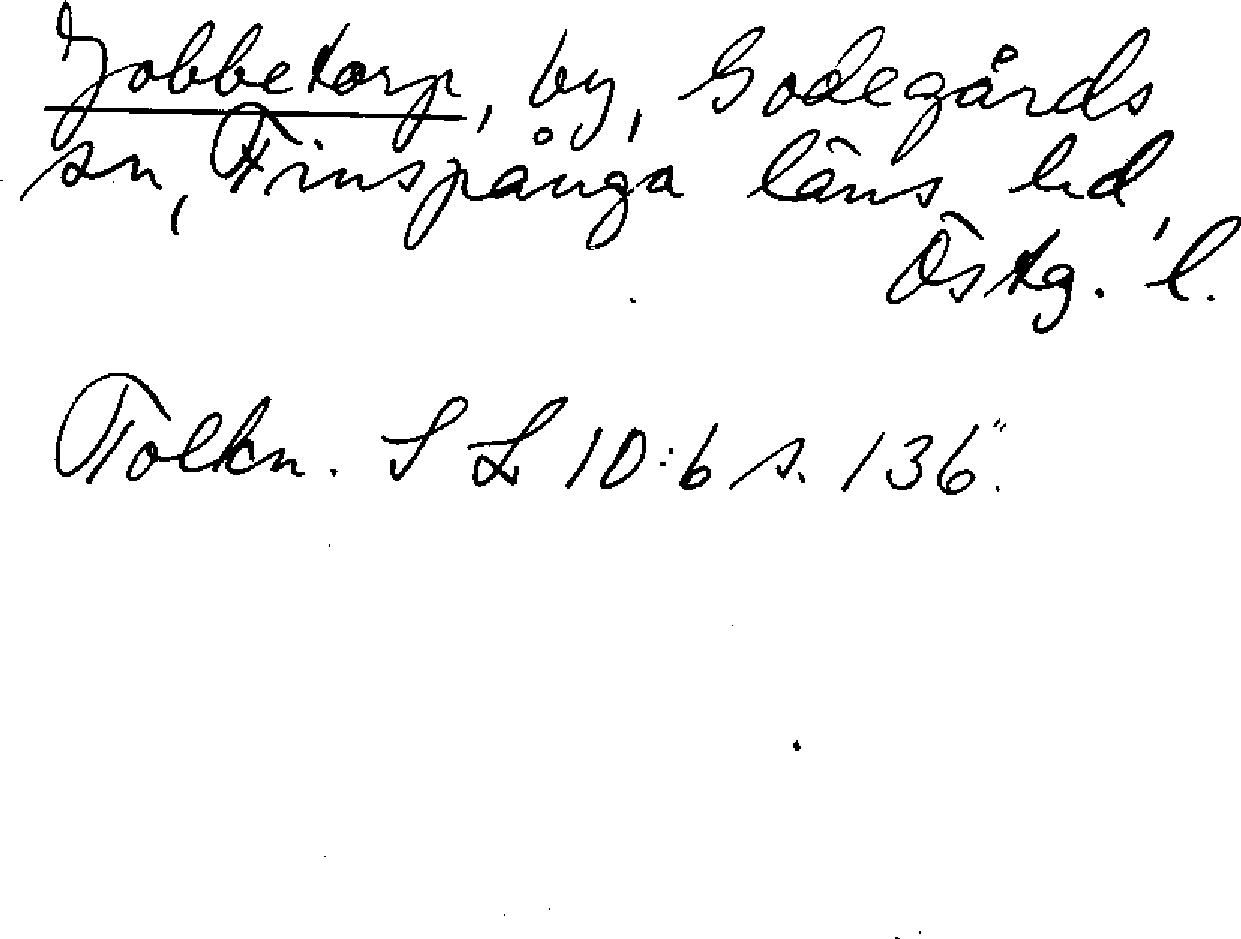 Jobbetorp, by, Godegårds
sn, Finspånga läns hd,
Östg. l.
Tolkn. SL 10:6 s. 136.